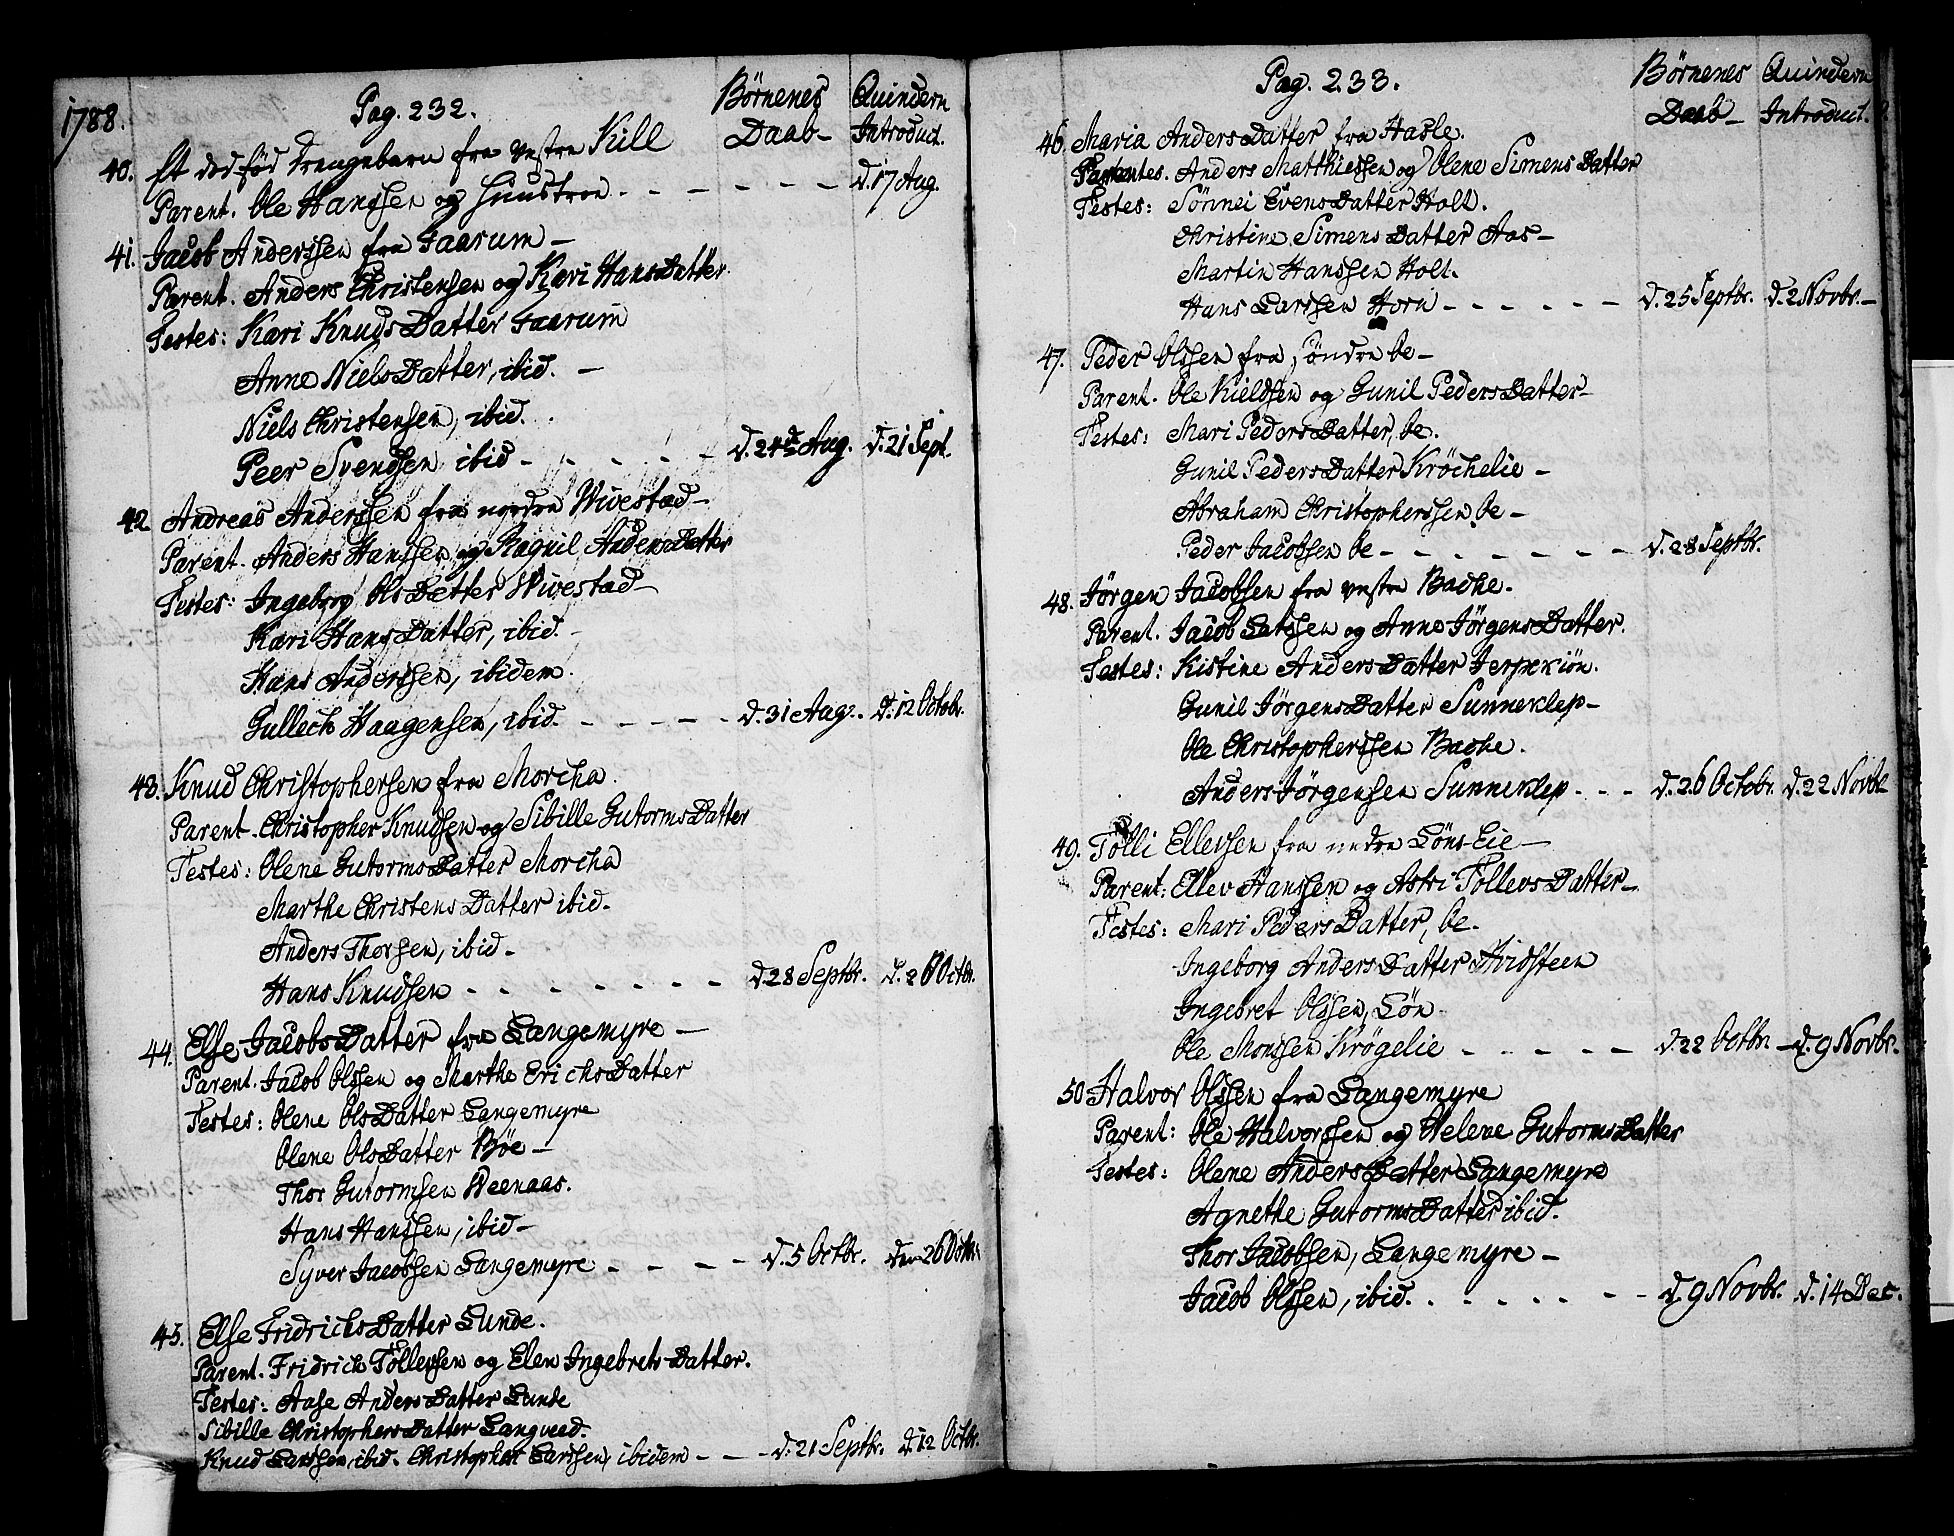 1788.
Pag. 232.
Börnenes Daab -
Quindern Introduct.
40. Et død fød drengebarn fra vestre Kill
Parent. Ole Hanssen og Huustroe - - - - - - d. 17 Aug.
41. Jacob Anderssen fra Faarum -
Parent. Anders Christensen og Kari HansDatter
Testes: Kari KnudsDatter Faarum
Anne NielsDatter, ibid. -
Niels Christensen, ibid.
Peer Svendsen ibid - - - - - - d. 24de Aug. d. 21 Sept.
42 Andreas Anderssen fra nordre Wivestad -
Parent. Anders Hanssen og Ragnil AndersDatter
Testes: Ingeborg OlsDatter Wivestad -
Kari HansDatter, ibid. -
Hans Anderssen, ibidem.
Gullech Haagensen, ibid. - - - - - d. 31 Aug. d. 12 Octobr.
43. Knud Christophersen fra Morcha
Parent. Christopher Knudsen og Sibille GutormsDatter
Testes: Olene GutormsDatter Morcha
Marthe ChristensDatter ibid.
Anders Thorsen, ibid -
Hans Knudsen - - - - - - - d. 28 Septbr. d. 26 Octbr.
44. Else JacobsDatter fra Langemyre -
Parent. Jacob Olssen og Marthe ErichsDatter
Testes: Olene OlsDatter Langemyre
Olene OlsDatter Bøe -
Thor Gutormsen Weenaas.
Hans Hanssen, ibid -
Syver Jacobsen Langemyre - - - - d. 5 Octbr. den 26 Octbr.
45. Else FridrichsDatter Lunde.
Parent. Fridrich Tollevsen og Elen IngebretsDatter.
Testes: Aase AndersDatter Lunde
Sibille ChristophersDatter Langveed.
Knud Larssen, ibid. Christopher Larssen, ibidem - - - d. 21 Septbr. d. 12 Octbr.
Pag. 233.
Börnenes Daab -
Quindern Introduct.
46. Maria AndersDatter fra Hasle.
Parentes. Anders Matthiessen og Olene SimensDatter
Testes: Sönnei EvensDatter Holt.
Christine SimensDatter Aas -
Martin Hanssen Holt.
Hans Larssen Horn - - - - - - d. 25 Septbr. d. 2 Novbr. -
47. Peder Olssen fra söndre Oe -
Parent. Ole Kieldsen og Gunil PedersDatter -
Testes: Mari PedersDatter, Oe.
Gunil PedersDatter Kröchelie -
Abraham Christopherssen Oe -
Peder Jacobsen Oe - - - - - - - d. 28 Septbr.
48. Jörgen Jacobsen fra vestre Bache.
Parent. Jacob Larssen og Anne JörgensDatter.
Testes: Kistine AndersDatter Jerpekiön.
Gunil JörgensDatter Sunneklep -
Ole Christopherssen Bache.
Anders Jörgensen Sunneklep - - - d. 26 Octobr. d. 22 Novbr
49. Tolli Ellevsen fra nedre Löns-Eie -
Parent: Ellev Hanssen og Astri TollevsDatter -
Testes: Mari PedersDatter, Oe.
Ingeborg AndersDatter Hvidsteen
Ingebret Olssen, Lön
Ole Monssen Krögelie - - - - - d. 22 Octbr. - d. 9 Novbr.
50 Halvor Olssen fra Langemyre
Parent: Ole Halvorssen og Helene GutormsDatter
Testes: Olene AndersDatter Langemyre
Agnethe GutormsDatter ibid.
Thor Jacobsen, Langemyre -
Jacob Olssen, ibid. - - - - - - - d. 9 Novbr. d. 14 Dec.